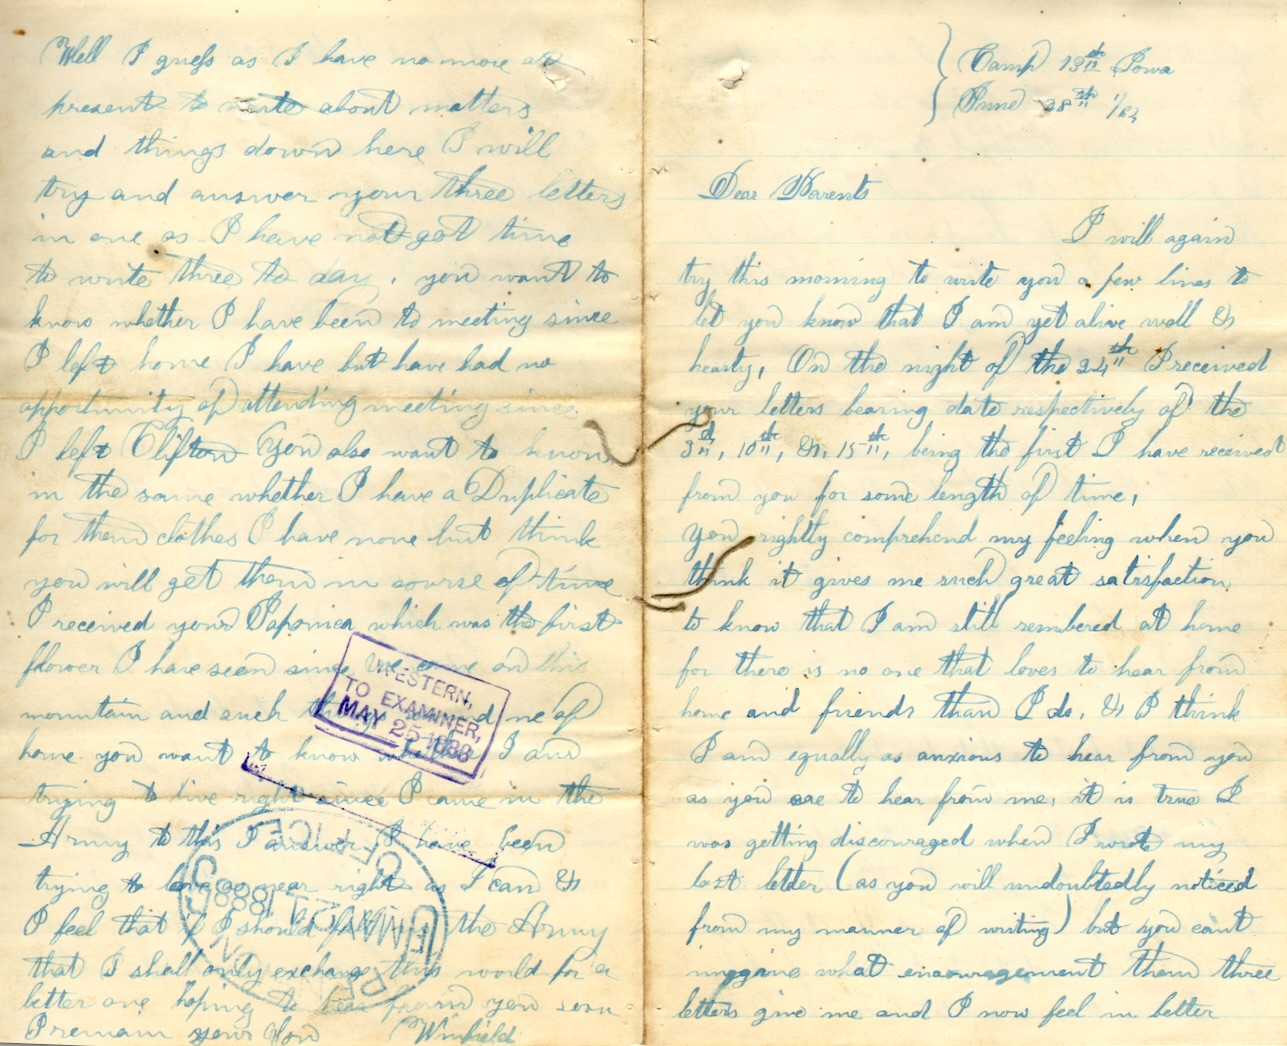 Camp 13th Iowa
June 28th /64
Dear Parents
I will again
try this morning to write you a few lines to
let you know that I am yet alive well &
hearty, On the night of the 24th I received
your letters bearing date respectively of the
3d, 10th, &, 15th, being the first I have received
from you for some length of time,
You rightly comprehend my feeling when you
think it gives me such great satisfaction
to know that I am still rembered at home
for there is no one that loves to hear from
home and friends than I do, & I think
I am equally as anxious to hear from you
as you are to hear from me, it is true I
was getting discouraged when I wrote my
last letter (as you will undoubtedly noticed
from my manner of writing) but you cant
imagine what encouragement them three
letters give me and I now feel in better
Well I guess as I have no more at
present to write about matters
and things down here I will
try and answer your three letters
in one as I have not got time
to write three to day, you want to
know whether I have been to meeting since
I left home I have but have had no
opportunity of attending meeting since
I left Clifton You also want to know
in the same whether I have a Duplicate
for them clothes I have none but think
you will get them in course of time
I received your Paponica which was the first
flower I have seen since we came on this
mountain and such me of
home you want to know I am
trying to live right since I came in the
Army to this I answer I have been
trying to live as near right as I can &
I feel that if I should fall in the Army
that I shall only exchange this world for a
better one hoping to hear from you soon
I remain your Son Winfield
WESTERN,
TO EXAMINER,
MAY 25 1888
PENSION OFFICE
MAY 21 1888